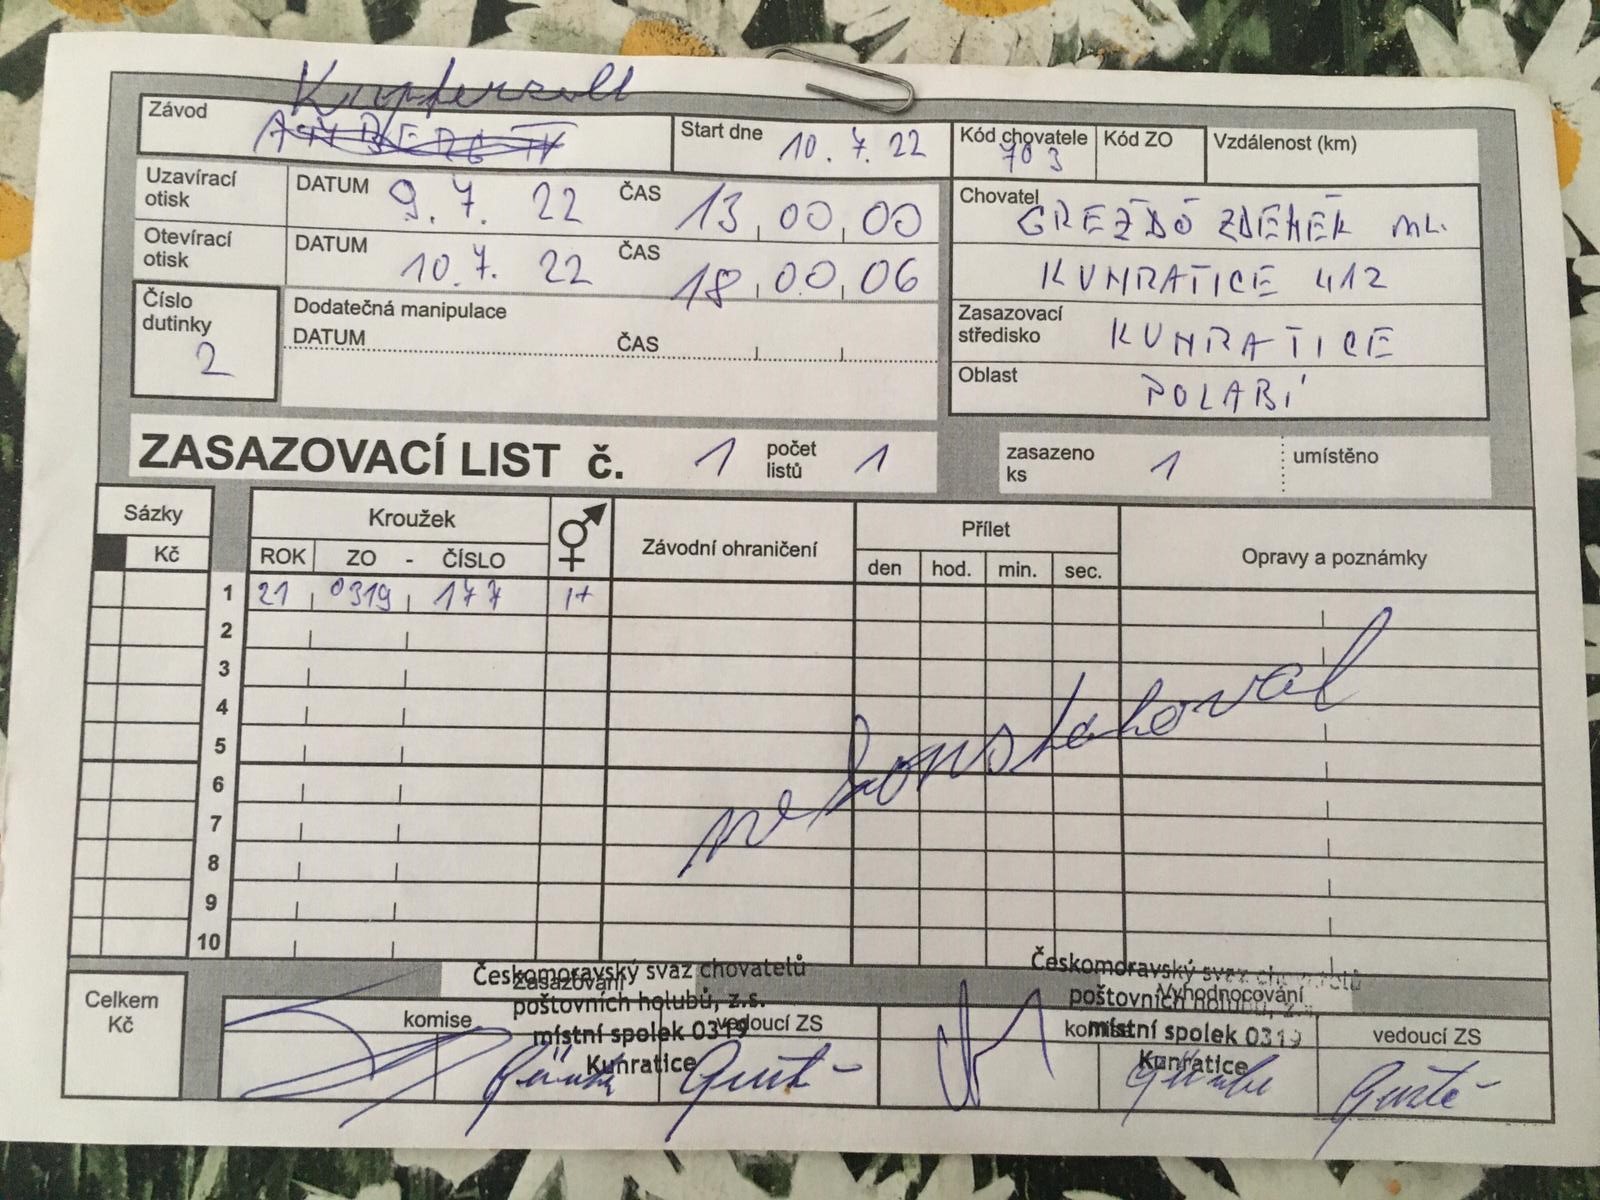 Kupferzell
Závod
Start dne 10. 7. 22
Kód chovatele 703
Kód ZO
Vzdálenost (km)
Uzavírací otisk DATUM 9. 7. 22 ČAS 13 00 00
Otevírací otisk DATUM 10. 7. 22 ČAS 18 00 06
Číslo dutinky 2
Dodatečná manipulace
DATUM ČAS
Chovatel GREŽDO ZDENĚK ML.
KUNRATICE 412
Zasazovací středisko KUNRATICE
Oblast POLABÍ
ZASAZOVACÍ LIST č. 1 počet listů 1
zasazeno ks 1 umístěno
Sázky
Kč
Kroužek
ROK ZO - ČÍSLO
Závodní ohraničení
Přílet
den hod. min. sec.
Opravy a poznámky
1 21 0319 177 1+
2
3
4
5
6
7
8
9
10
nekonstatoval
Celkem Kč
Zasazování
komise
vedoucí ZS
Českomoravský svaz chovatelů
poštovních holubů, z.s.
místní spolek 0319
Kunratice
Vyhodnocování
komise
vedoucí ZS
Českomoravský svaz chovatelů
poštovních holubů, z.s.
místní spolek 0319
Kunratice